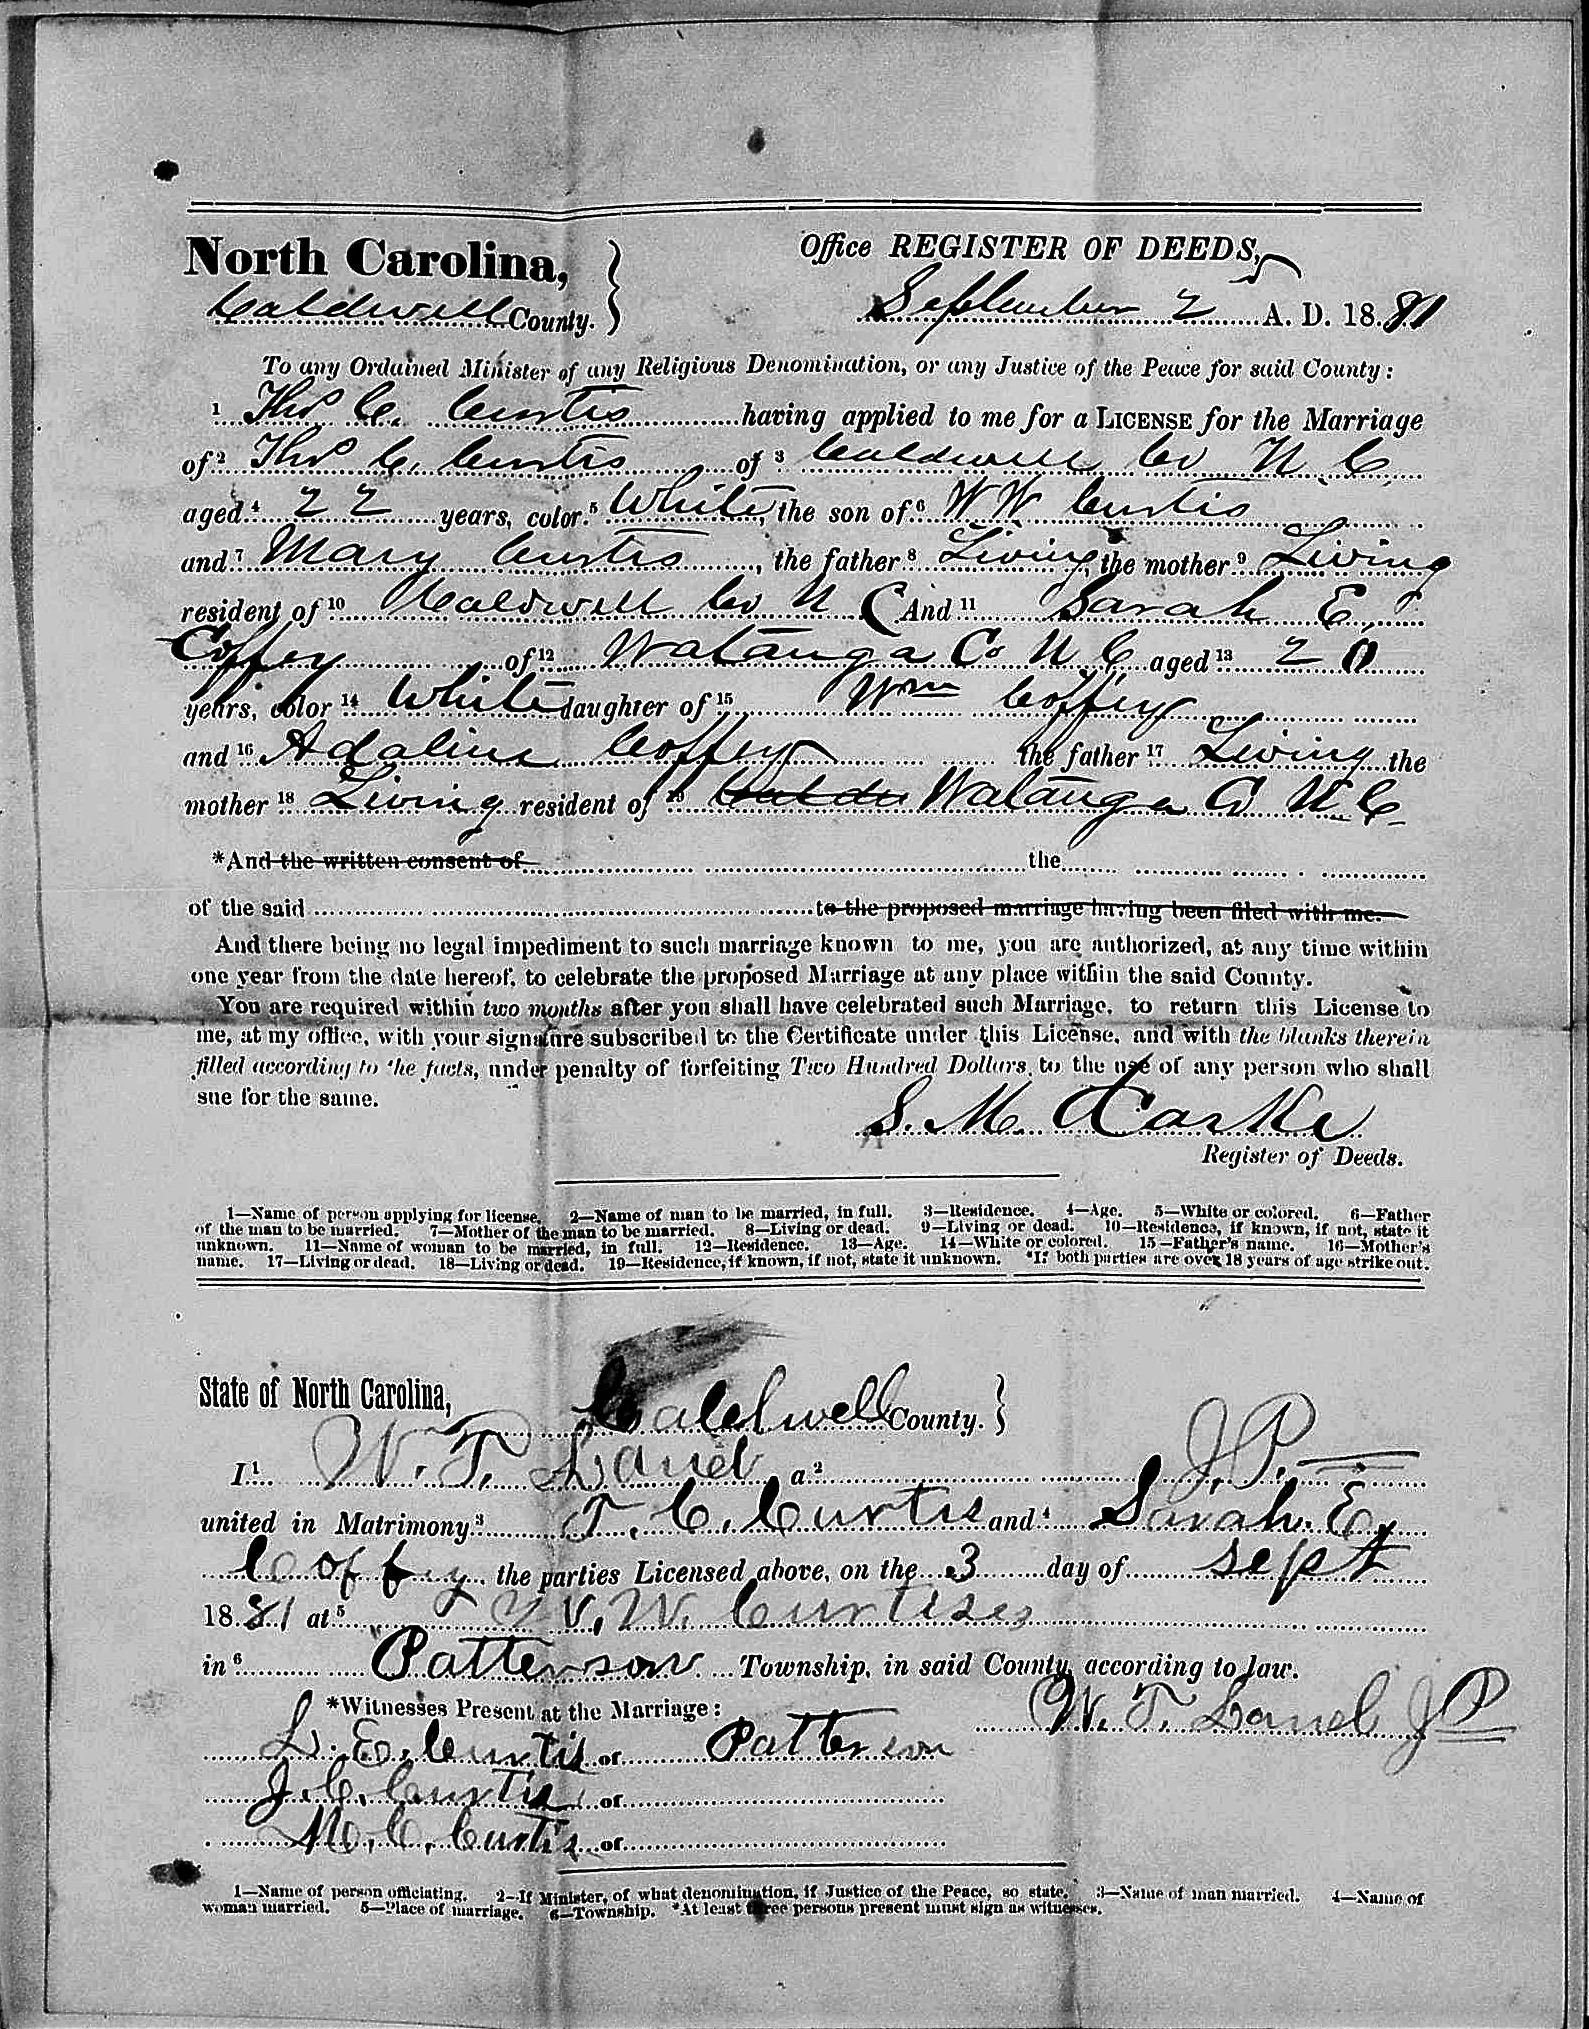 North Carolina,
Caldwell County.
Office REGISTER OF DEEDS,
September 2 A. D. 1881
To any Ordained Minister of any Religious Denomination, or any Justice of the Peace for said County:
1 Thos C. Curtis having applied to me for a LICENSE for the Marriage
of 2 Thos C. Curtis of 3 Caldwell Co N C
aged 4 22 years, color 5 White, the son of 6 W W Curtis
and 7 Mary Curtis, the father 8 Living, the mother 9 Living
resident of 10 Caldwell Co N C And 11 Sarah E.
Coffey of 12 Watauga Co N C aged 13 20
years, color 14 White daughter of 15 Wm Coffey
and 16 Adaline Coffey the father 17 Living the
mother 18 Living resident of 19 Caldw Watauga Co N C
*And the written consent of the
of the said to the proposed marriage having been filed with me.
And there being no legal impediment to such marriage known to me, you are authorized, at any time within
one year from the date hereof, to celebrate the proposed Marriage at any place within the said County.
You are required within two months after you shall have celebrated such Marriage, to return this License to
me, at my office, with your signature subscribed to the Certificate under this License, and with the blanks therein
filled according to the facts, under penalty of forfeiting Two Hundred Dollars, to the use of any person who shall
sue for the same.
S. M. Clarke
Register of Deeds.
1—Name of person applying for license. 2—Name of man to be married, in full. 3—Residence. 4—Age. 5—White or colored. 6—Father
of the man to be married. 7—Mother of the man to be married. 8—Living or dead. 9—Living or dead. 10—Residence, if known, if not, state it
unknown. 11—Name of woman to be married, in full. 12—Residence. 13—Age. 14—White or colored. 15—Father's name. 16—Mother's
name. 17—Living or dead. 18—Living or dead. 19—Residence, if known, if not, state it unknown. *If both parties are over 18 years of age strike out.
State of North Carolina,
Caldwell County.
I 1 W. T. a 2 J. P.
united in Matrimony 3 T. C. Curtis and 4 Sarah. E.
Coffey the parties Licensed above, on the 3 day of sept
1881 at 5 W. Curtises
in 6 Patterson Township, in said County, according to law.
*Witnesses Present at the Marriage:
W. T. JP
L. E. Curtis of Patterson
J. C. Curtis of
M. C. Curtis of
1—Name of person officiating. 2—If Minister, of what denomination, if Justice of the Peace, so state. 3—Name of man married. 4—Name of
woman married. 5—Place of marriage. 6—Township. *At least three persons present must sign as witnesses.